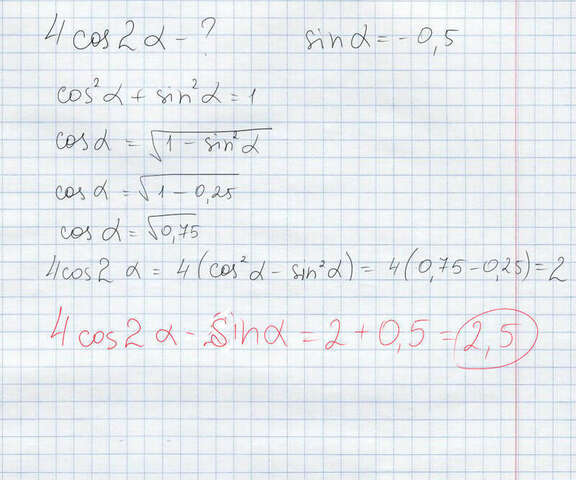 4cos2α - ? sinα = -0,5
cos²α + sin²α = 1
cosα = √(1 - sin²α)
cosα = √(1 - 0,25)
cosα = √0,75
4cos2α = 4(cos²α - sin²α) = 4(0,75 - 0,25) = 2
4cos2α - sinα = 2 + 0,5 = 2,5